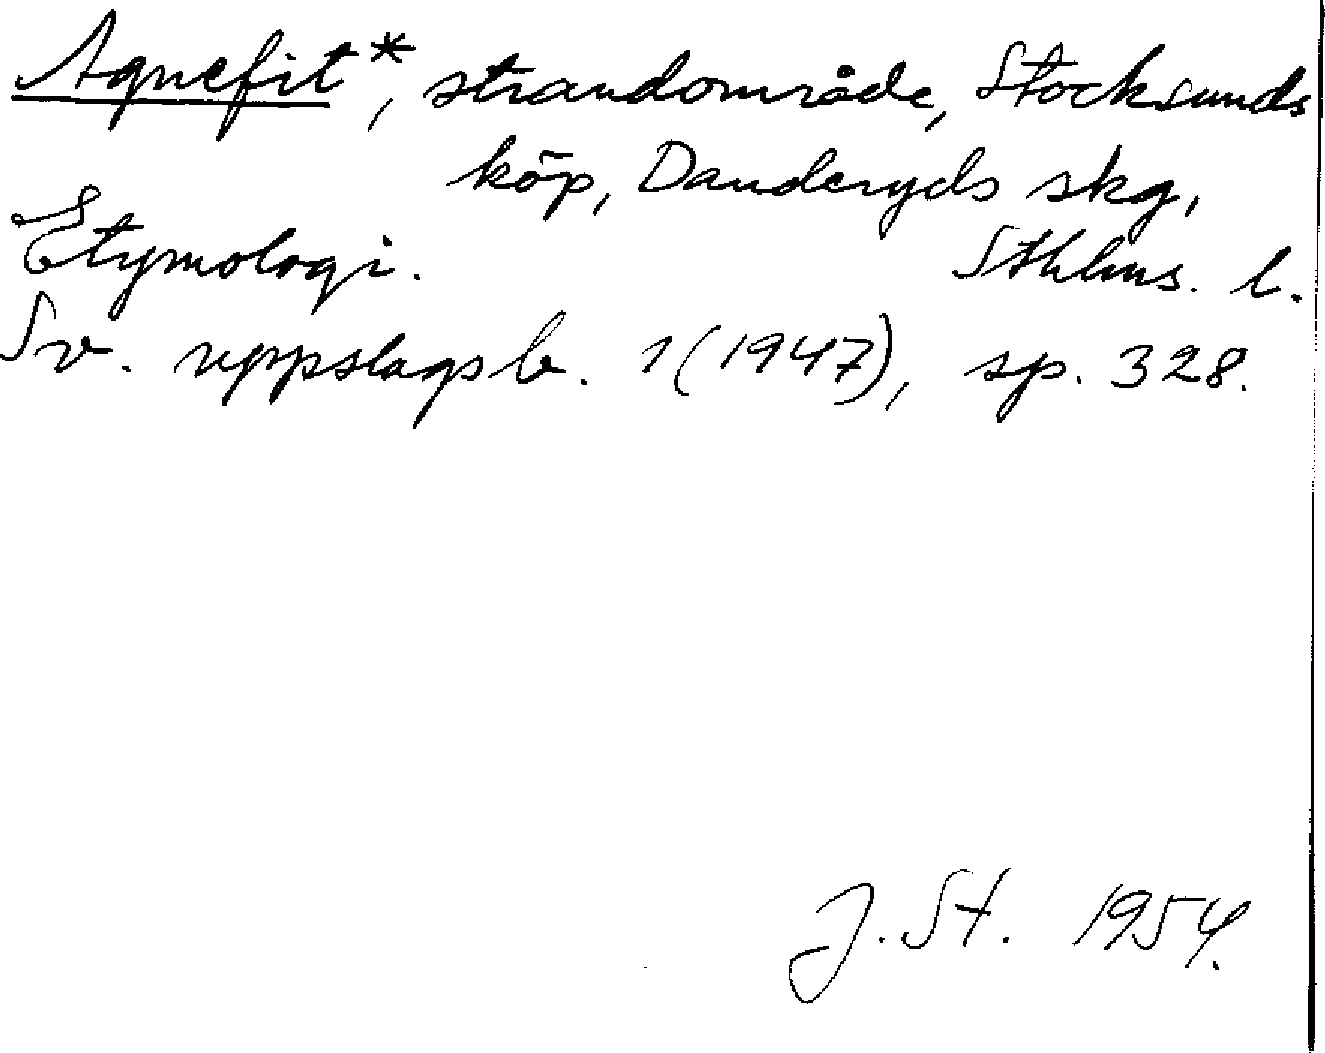 Agnefit*, strandområde, Stocksunds
köp, Danderyds skg,
Etymologi. Sthlms. l.
Sv. uppslagsb. 1(1947), sp. 328.
J. St. 1954.